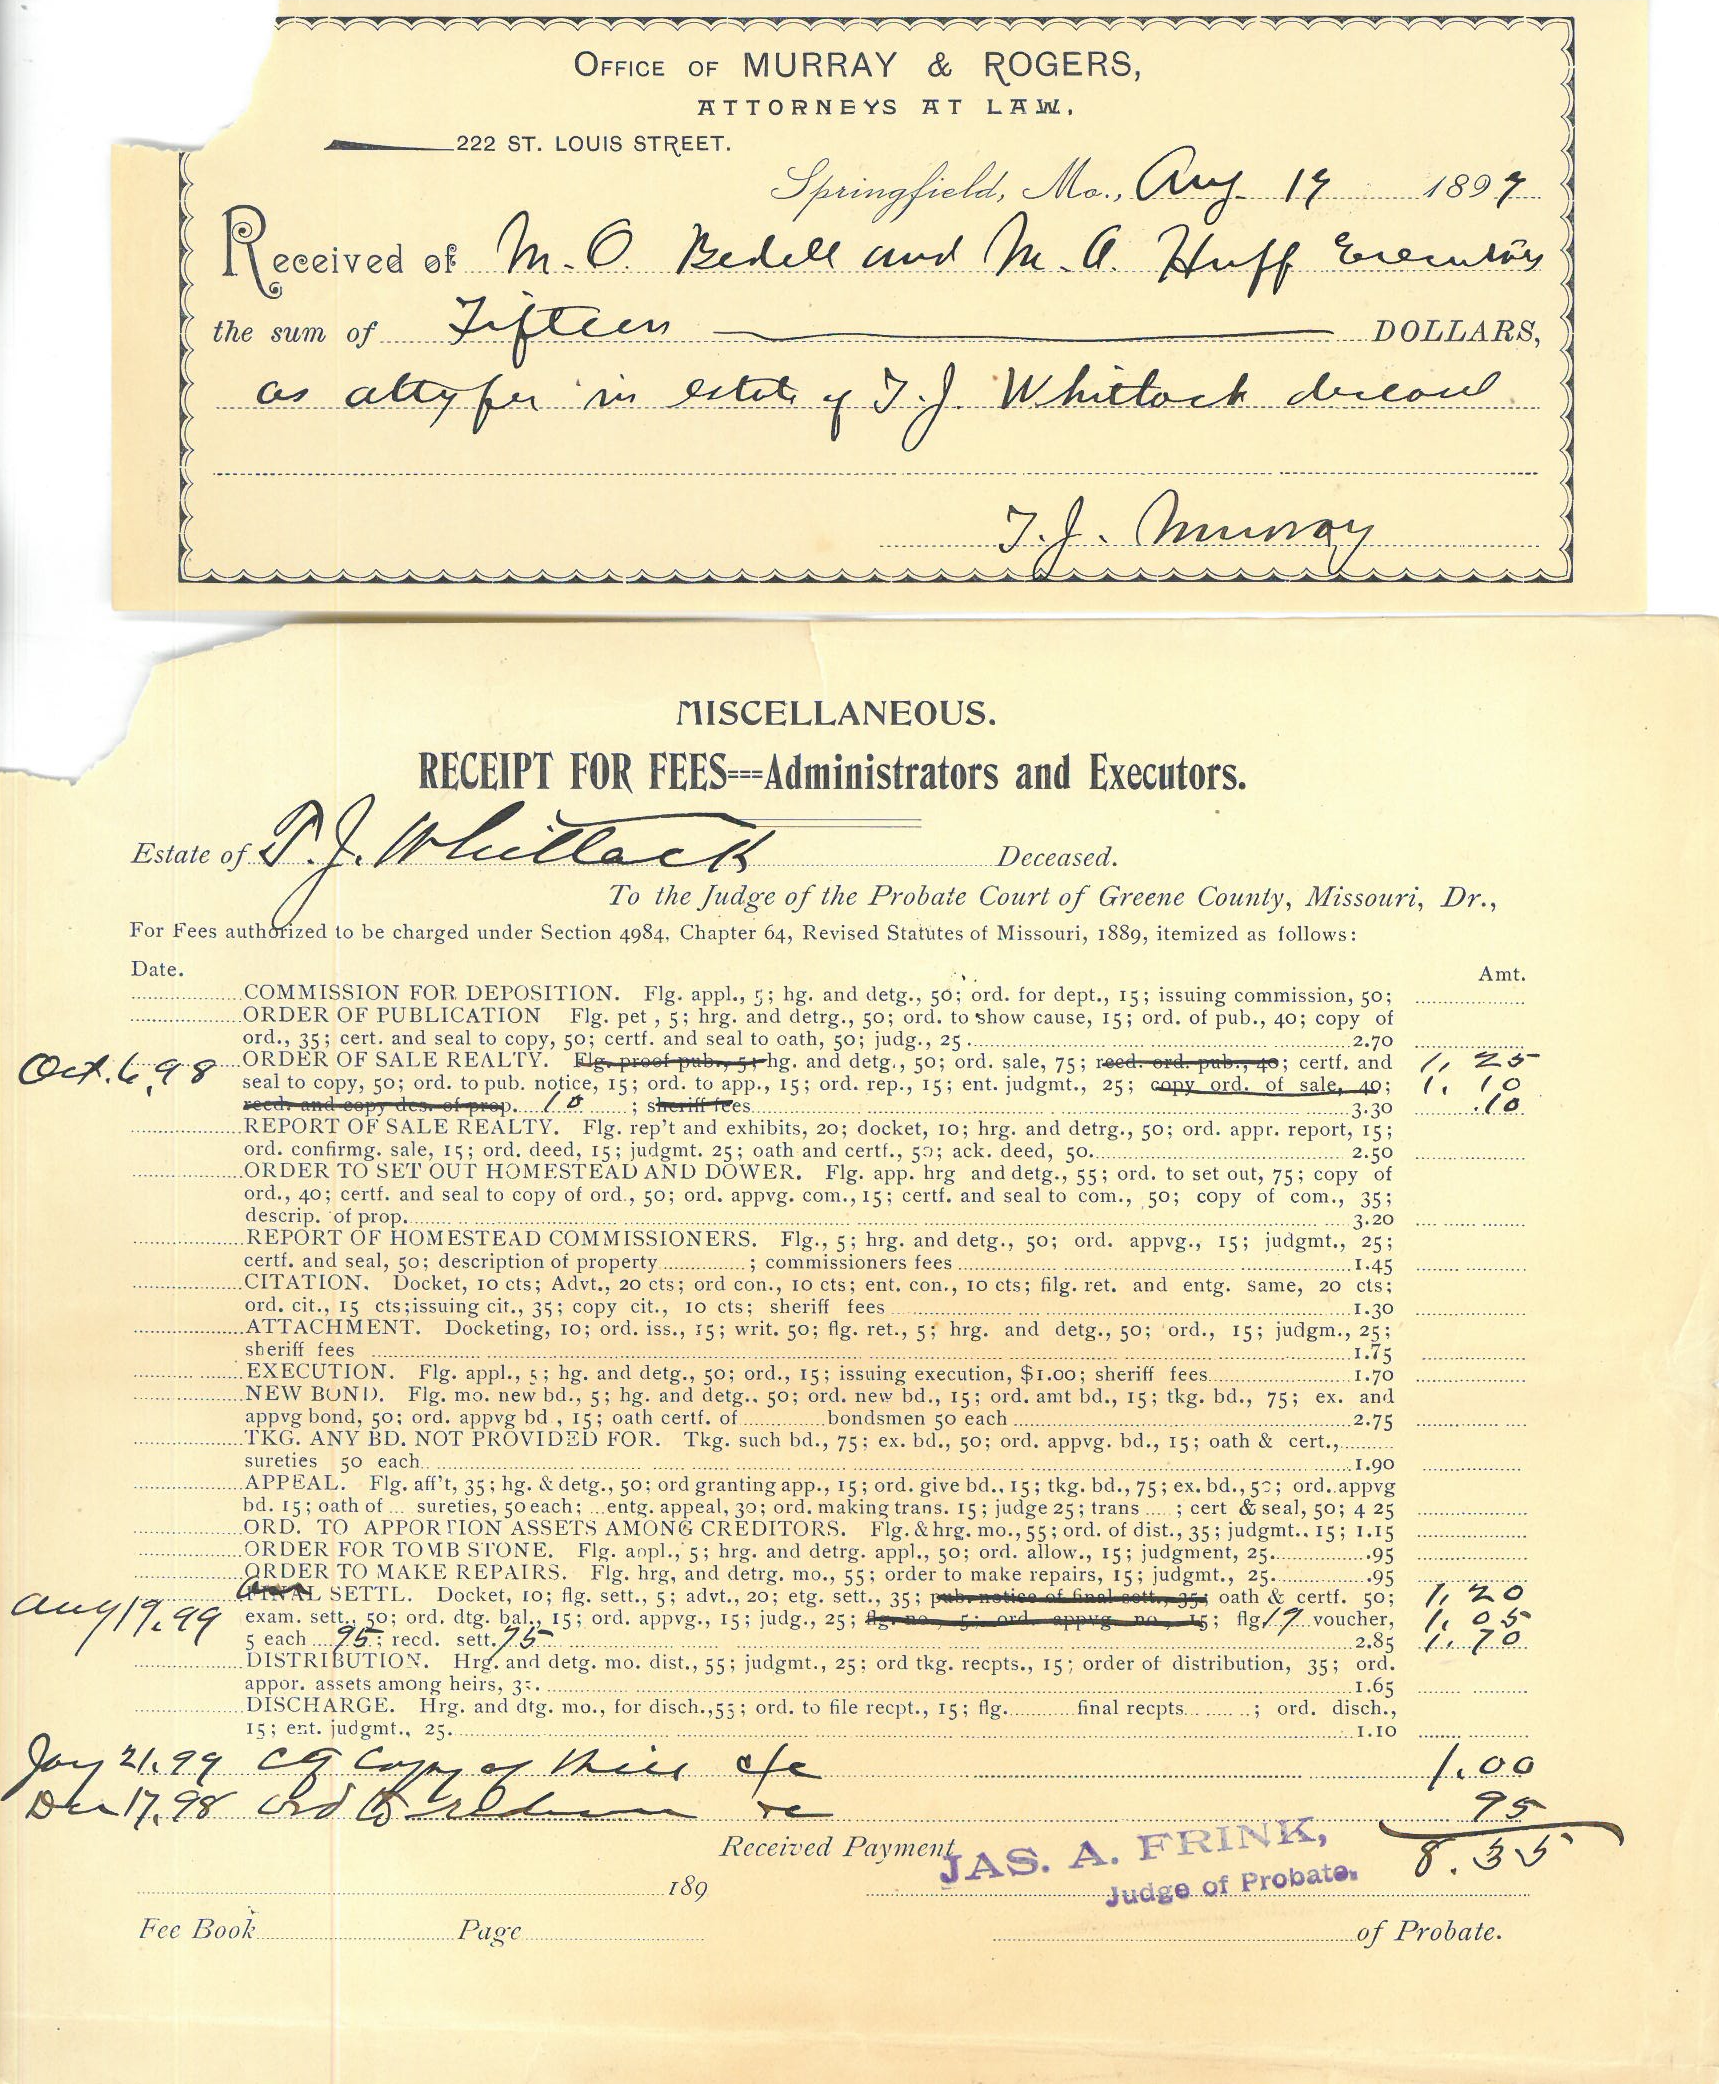 OFFICE OF MURRAY & ROGERS,
ATTORNEYS AT LAW,
222 ST. LOUIS STREET.
Springfield, Mo., Aug. 19 1899
Received of M. O. Bedell and M. A. Huff Executors
the sum of Fifteen DOLLARS,
as atty fee in estate of T. J. Whitlock deceased
T. J. Murray
MISCELLANEOUS.
RECEIPT FOR FEES===Administrators and Executors.
Estate of T. J. Whitlock Deceased.
To the Judge of the Probate Court of Greene County, Missouri, Dr.,
For Fees authorized to be charged under Section 4984, Chapter 64, Revised Statutes of Missouri, 1889, itemized as follows:
Date. Amt.
COMMISSION FOR DEPOSITION. Flg. appl., 5; hg. and detg., 50; ord. for dept., 15; issuing commission, 50;
ORDER OF PUBLICATION Flg. pet , 5; hrg. and detrg., 50; ord. to show cause, 15; ord. of pub., 40; copy of
ord., 35; cert. and seal to copy, 50; certf. and seal to oath, 50; judg., 25 2.70
Oct. 6, 98 ORDER OF SALE REALTY. Flg. proof pub., 5; hg. and detg., 50; ord. sale, 75; recd. ord. pub., 40; certf. and 1, 25
seal to copy, 50; ord. to pub. notice, 15; ord. to app., 15; ord. rep., 15; ent. judgmt., 25; copy ord. of sale, 40; 1, 10
recd. and copy des. of prop. 10 ; sheriff fees 3.30 .10
REPORT OF SALE REALTY. Flg. rep't and exhibits, 20; docket, 10; hrg. and detrg., 50; ord. appr. report, 15;
ord. confirmg. sale, 15; ord. deed, 15; judgmt. 25; oath and certf., 50; ack. deed, 50. 2.50
ORDER TO SET OUT HOMESTEAD AND DOWER. Flg. app. hrg and detg., 55; ord. to set out, 75; copy of
ord., 40; certf. and seal to copy of ord., 50; ord. appvg. com., 15; certf. and seal to com., 50; copy of com., 35;
descrip. of prop. 3.20
REPORT OF HOMESTEAD COMMISSIONERS. Flg., 5; hrg. and detg., 50; ord. appvg., 15; judgmt., 25;
certf. and seal, 50; description of property ; commissioners fees 1.45
CITATION. Docket, 10 cts; Advt., 20 cts; ord con., 10 cts; ent. con., 10 cts; filg. ret. and entg. same, 20 cts;
ord. cit., 15 cts; issuing cit., 35; copy cit., 10 cts; sheriff fees 1.30
ATTACHMENT. Docketing, 10; ord. iss., 15; writ. 50; flg. ret., 5; hrg. and detg., 50; ord., 15; judgm., 25;
sheriff fees 1.75
EXECUTION. Flg. appl., 5; hg. and detg., 50; ord., 15; issuing execution, $1.00; sheriff fees 1.70
NEW BOND. Flg. mo. new bd., 5; hg. and detg., 50; ord. new bd., 15; ord. amt bd., 15; tkg. bd., 75; ex. and
appvg bond, 50; ord. appvg bd , 15; oath certf. of bondsmen 50 each 2.75
TKG. ANY BD. NOT PROVIDED FOR. Tkg. such bd., 75; ex. bd., 50; ord. appvg. bd., 15; oath & cert.,
sureties 50 each 1.90
APPEAL. Flg. aff't, 35; hg. & detg., 50; ord granting app., 15; ord. give bd., 15; tkg. bd., 75; ex. bd., 50; ord. appvg
bd. 15; oath of sureties, 50 each; entg. appeal, 30; ord. making trans. 15; judge 25; trans ; cert & seal, 50; 4 25
ORD. TO APPORTION ASSETS AMONG CREDITORS. Flg. & hrg. mo., 55; ord. of dist., 35; judgmt., 15; 1.15
ORDER FOR TOMB STONE. Flg. appl., 5; hrg. and detrg. appl., 50; ord. allow., 15; judgment, 25. .95
ORDER TO MAKE REPAIRS. Flg. hrg, and detrg. mo., 55; order to make repairs, 15; judgmt., 25. .95
Aug 19, 99 FINAL SETTL. Docket, 10; flg. sett., 5; advt., 20; etg. sett., 35; pub. notice of final sett., 35; oath & certf. 50; 1, 20
exam. sett., 50; ord. dtg. bal., 15; ord. appvg., 15; judg., 25; flg. no., 5; ord. appvg. no., 15; flg 19 voucher, 1, 05
5 each 95; recd. sett. 75 2.85 1, 70
DISTRIBUTION. Hrg. and detg. mo. dist., 55; judgmt., 25; ord tkg. recpts., 15; order of distribution, 35; ord.
appor. assets among heirs, 35. 1.65
DISCHARGE. Hrg. and dtg. mo., for disch., 55; ord. to file recpt., 15; flg. final recpts ; ord. disch.,
15; ent. judgmt., 25. 1.10
Jay 21, 99 Copy of Will c/c 1.00
Dec 17, 98 Ord to 95
Received Payment JAS. A. FRINK, 8.35
189 Judge of Probate.
Fee Book Page of Probate.